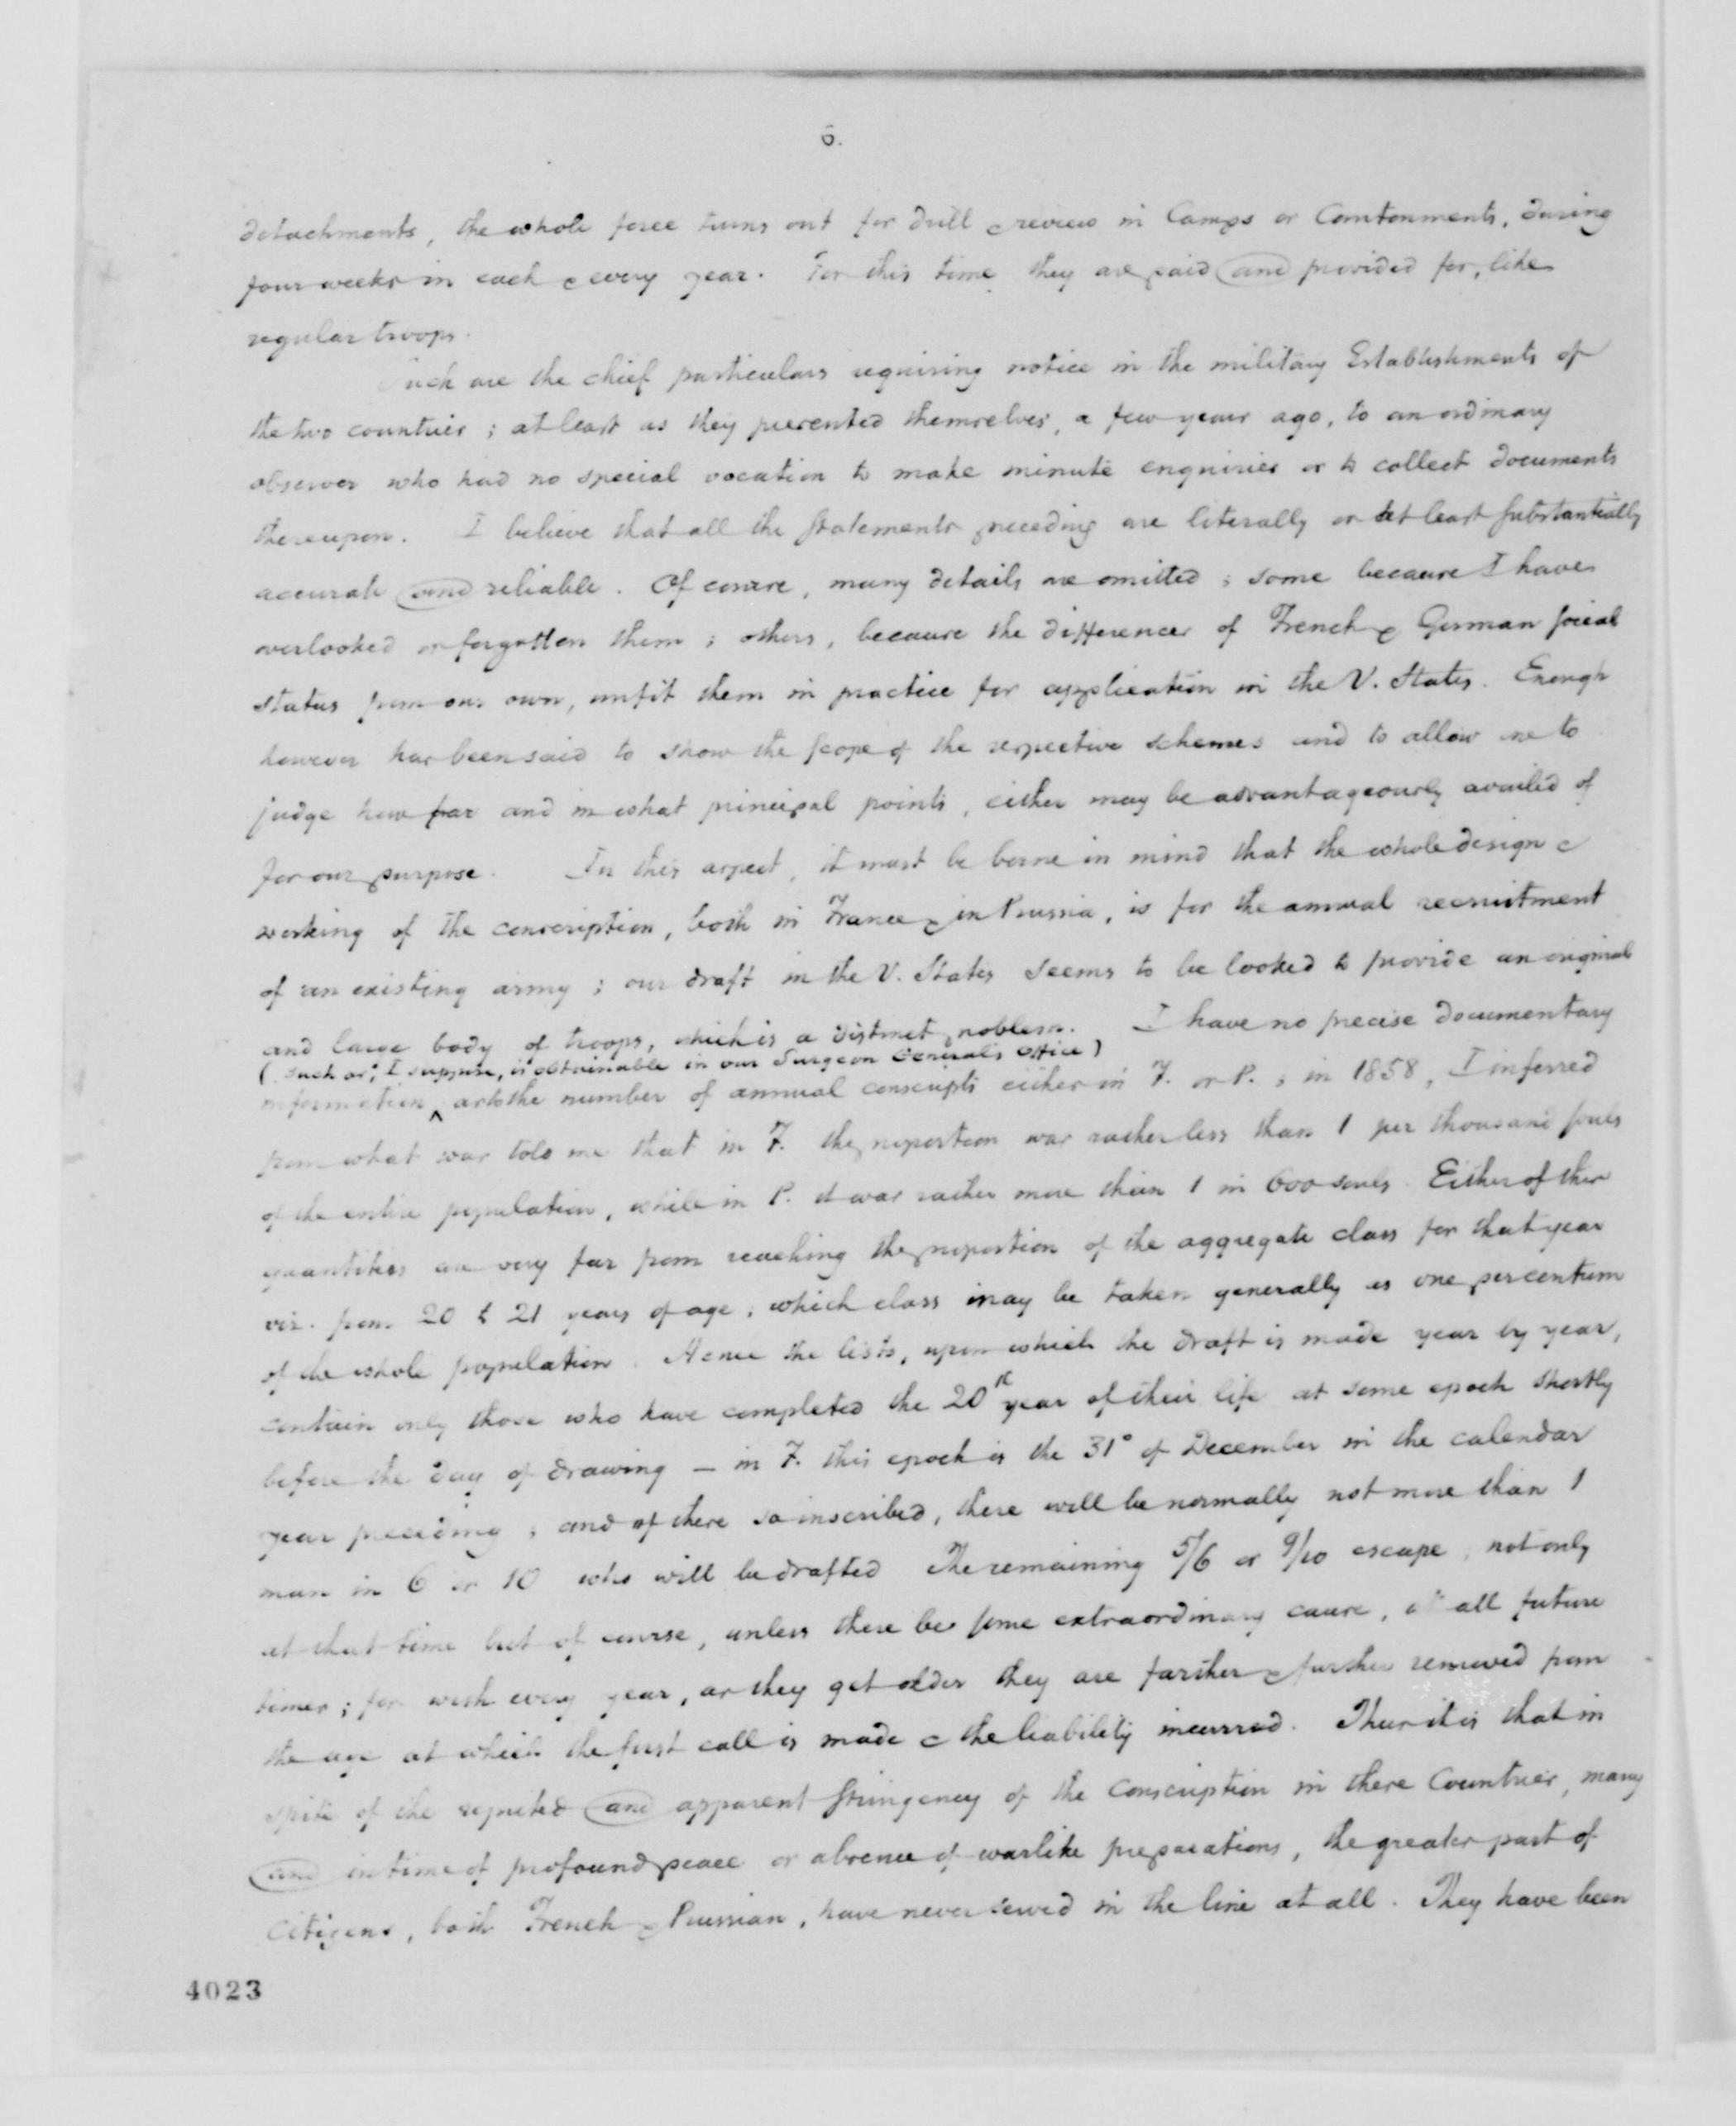 6.
detachments, the whole force turns out for drill & review in Camps or Cantonments, during
four weeks in each & every year. For this time they are paid and provided for, like
regular troops.
Such are the chief particulars requiring notice in the military Establishments of
the two countries; at least as they presented themselves, a few years ago, to an ordinary
observer who had no special vocation to make minute enquiries or to collect documents
thereupon. I believe that all the statements preceding are literally or at least substantially
accurate and reliable. Of course, many details are omitted; some because I have
overlooked or forgotten them; others, because the differences of French & German social
status from our own, unfit them in practice for application in the U. States. Enough
however has been said to show the scope of the respective schemes and to allow one to
judge how far and in what principal points, either may be advantageously availed of
for our purpose. In this aspect, it must be borne in mind that the whole design &
working of the conscription, both in France & in Prussia, is for the annual recruitment
of an existing army; our draft in the U. States seems to be looked to provide an original
and large body of troops, which is a distinct problem. I have no precise documentary
(such as, I suppose, is obtainable in our Surgeon General's Office)
information ^ as to the number of annual conscripts either in F. or P.; in 1858, I inferred
from what was told me that in F. the proportion was rather less than 1 per thousand souls
of the entire population, while in P. it was rather more than 1 in 600 souls. Either of these
quantities are very far from reaching the proportion of the aggregate class for that year
viz. from 20 to 21 years of age; which class may be taken generally as one per centum
of the whole population. Hence the lists, upon which the draft is made year by year,
contain only those who have completed the 20th year of their life at some epoch shortly
before the day of drawing – in F. this epoch is the 31° of December in the calendar
year preceding; and of these so inscribed, there will be normally not more than 1
man in 6 or 10 who will be drafted The remaining 5/6 or 9/10 escape, not only
at that time but of course, unless there be some extraordinary cause, at all future
times; for with every year, as they get older they are farther & further removed from
the age at which the first call is made & the liability incurred. Thus it is that in
spite of the reputed and apparent stringency of the Conscription in these Countries, many
and in time of profound peace or absence of warlike preparations, the greater part of
citizens, both French & Prussian, have never served in the line at all. They have been
4023